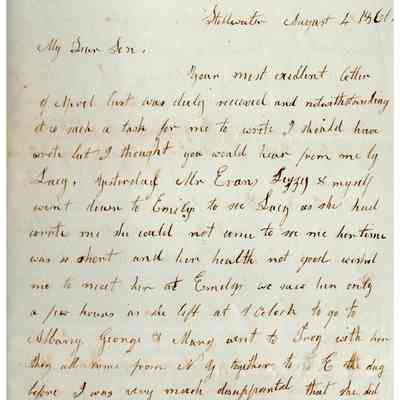 Stillwater August 4 1861.
My Dear Son.
Your most excellent letter
of April last was duly received and notwithstanding
it is such a task for me to wrote I should have
wrote but I thought you would hear from me by
Lucy, Yesterday Mr Evans Lizzy & myself
went down to Emilys to see Lucy as she had
wrote me she could not come to see me her time
was so short and her health not good wished
me to meet her at Emilys we saw her only
a few hours as she left at 1 Oclock to go to
Albany George & Mary went to Troy with her
they all came from N Y together to the day
before I was very much disappointed that she did